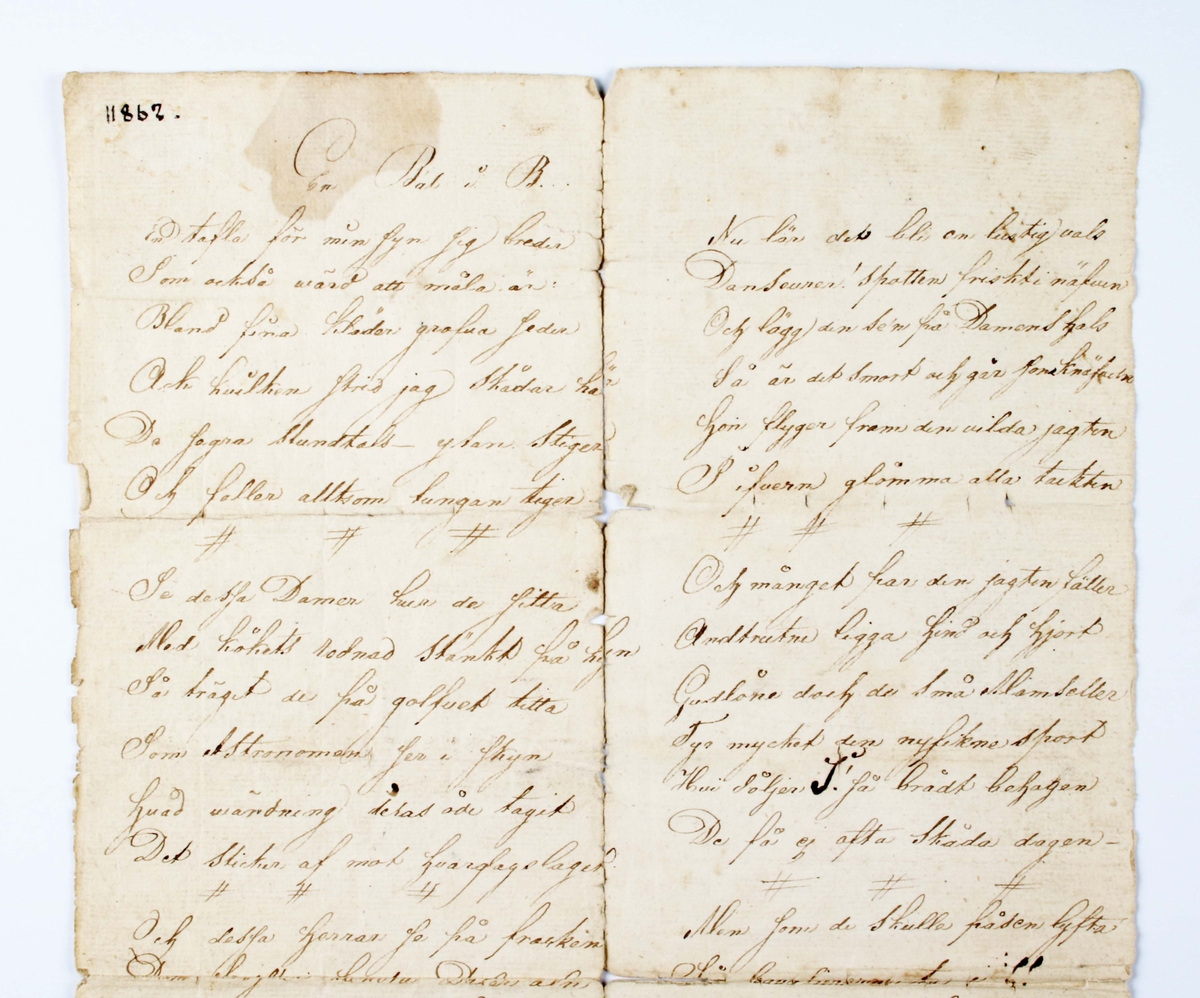 11862.
En Bal i B...
En tafla för min syn sig breder
Som också wärd att måla är:
Bland fina kläder grofva seder
Ack hvilken strid jag skådar här
De fagra stundtals ytan stiger
Och faller alltsom tungan tiger
# # #
Se dessa Damer hur de sitta
Med kökets rodnad stänkt på hyn
Så träget de på golfvet titta
Som Astronomen ser i skyn
Hvad wändning deras öde tagit
Det sticker af mot hvardagslaget
# # #
Och dessa herrar se på fracken
Den
Nu lär det bli en lustig vals
Danseurer! spotten friskt i näfven
Och lägg den se'n på Damens hals
Så är det smort och går som
Hon flyger fram den vilda jagten
I ifvern glömma alla takten
# # #
Och månget par den jagten fäller
Andtrutne ligga Hind och Hjort
Gudlöne dock de små Mamseller
Tyr mycket den nyfikne sport
Hvi döljer I! så brådt behagen
De få ej ofta skåda dagen –
# # #
Men som de skulle påsen lyfta
Så